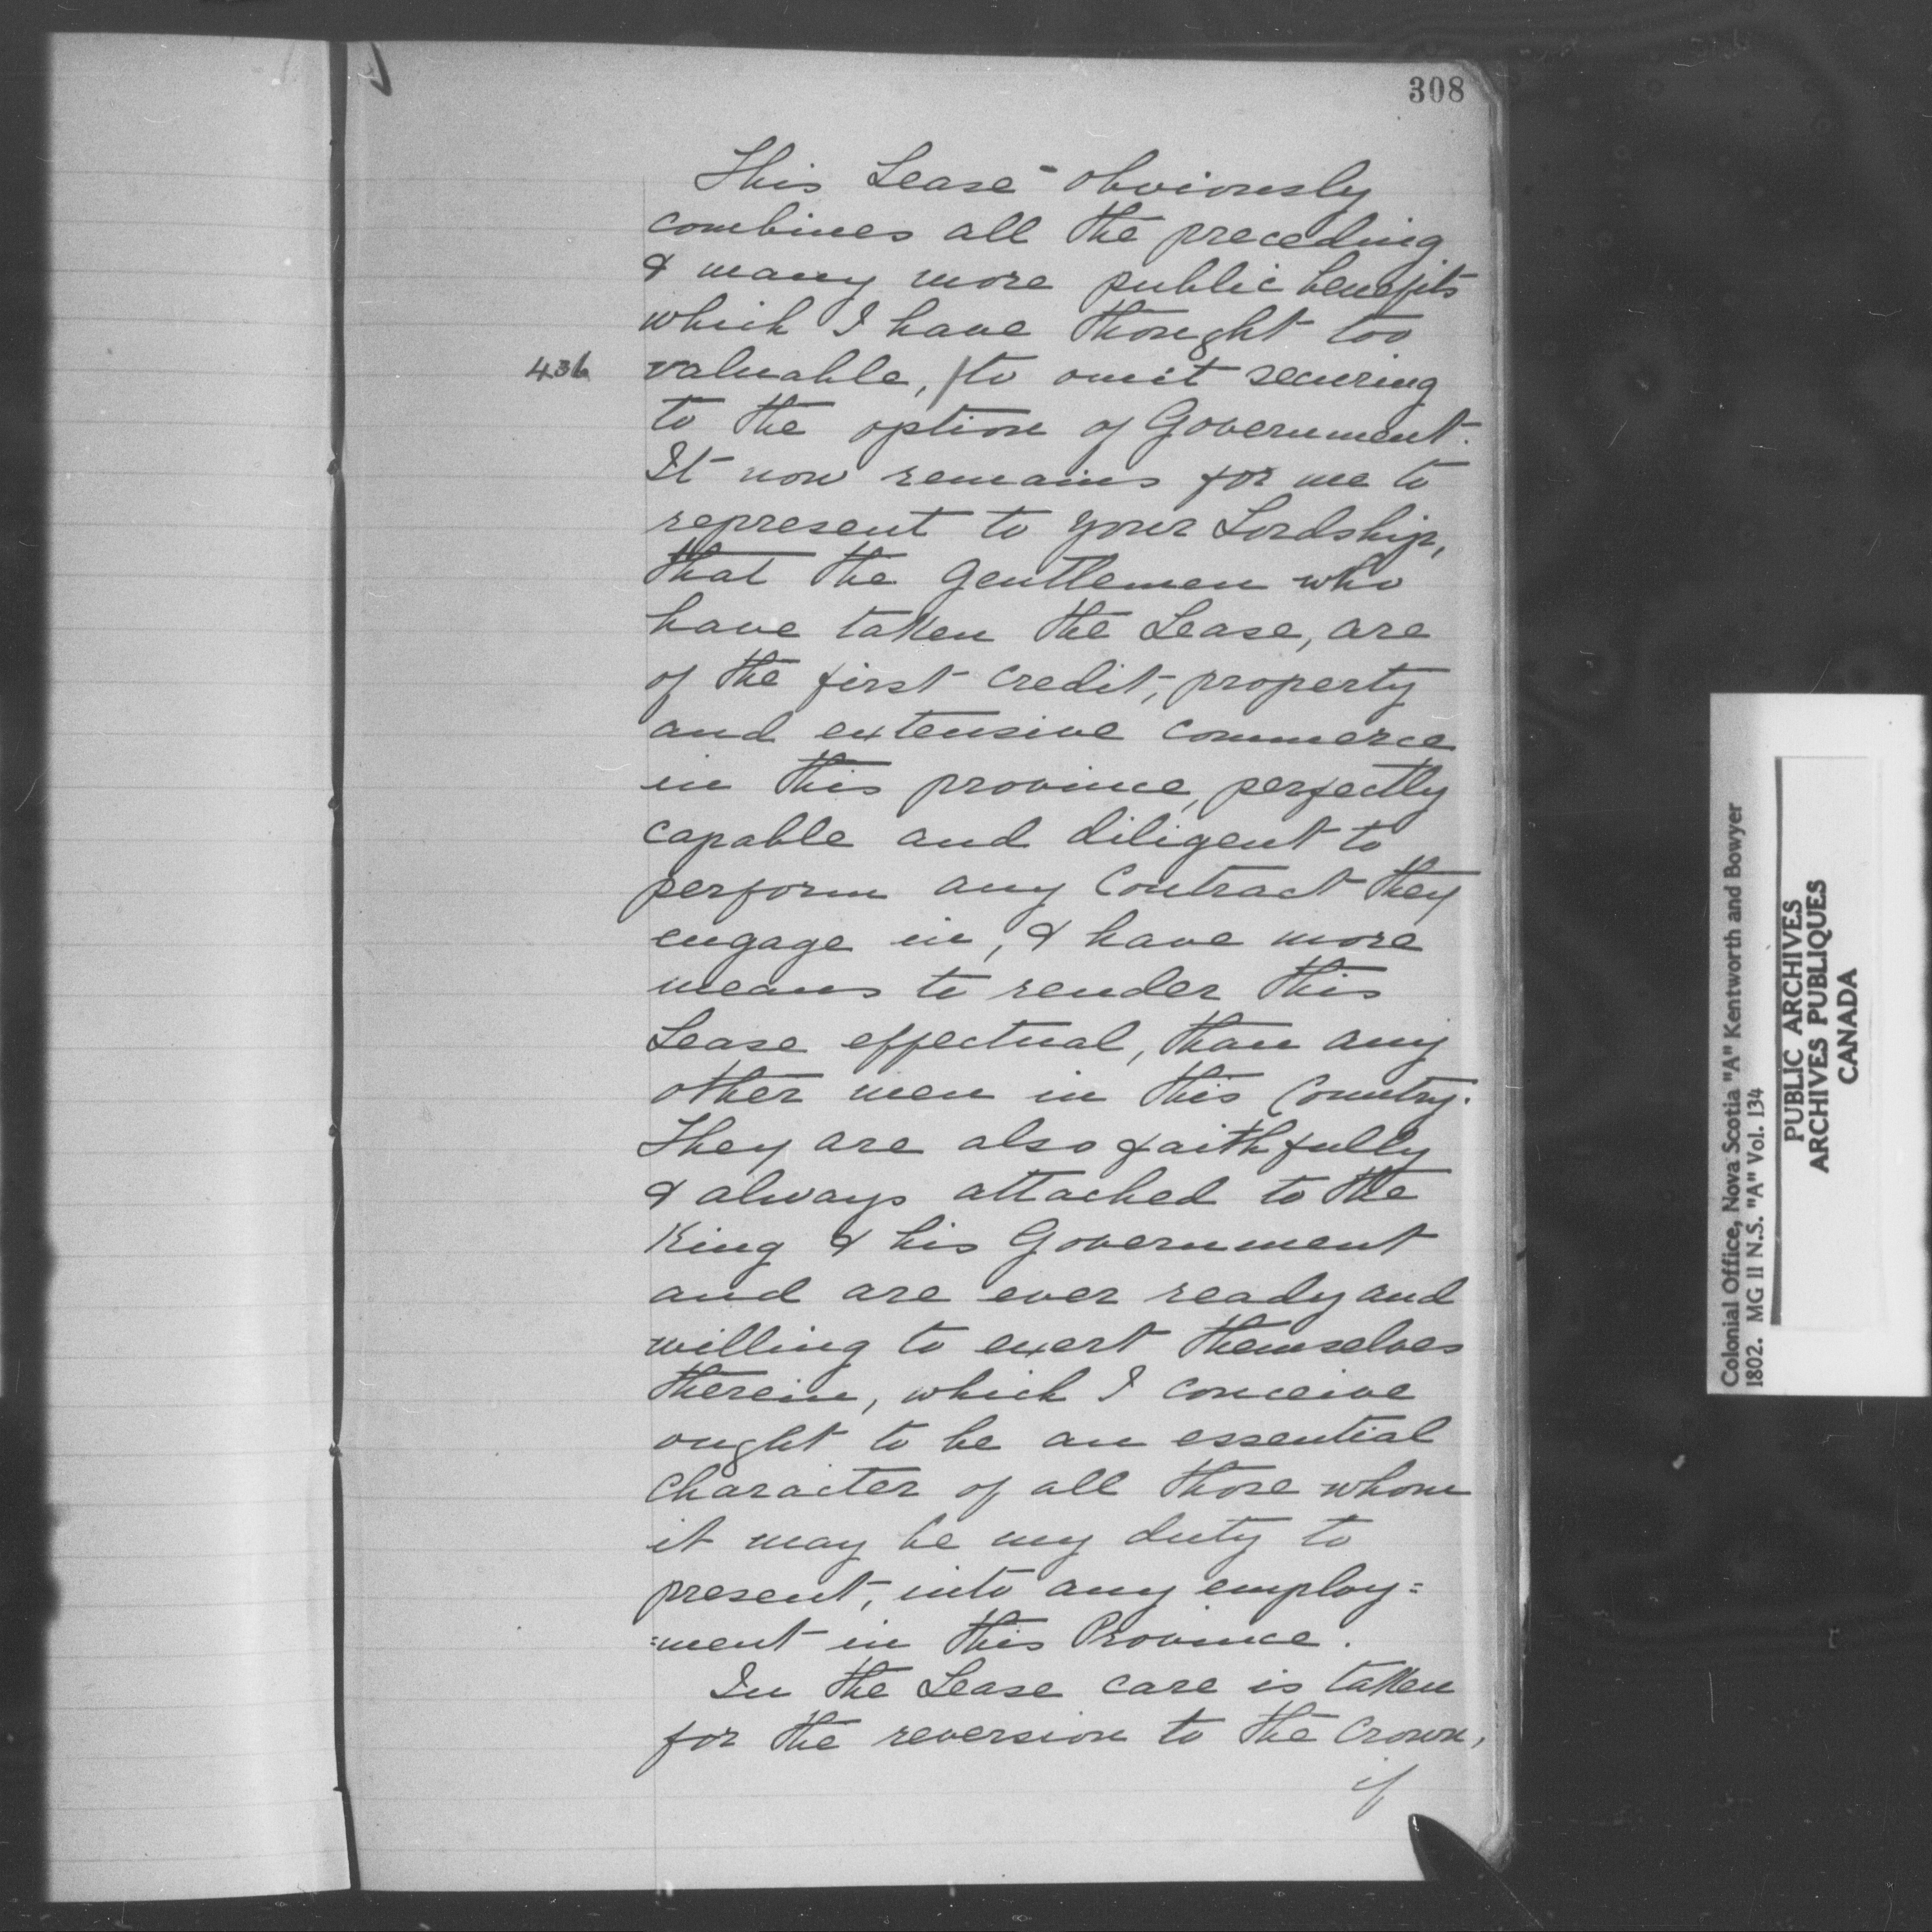 308
This Lease obviously
combines all the preceding
& many more public benefits
which I have thought too
436 valuable, /to omit securing
to the option of Government.
It now remains for me to
represent to your Lordship,
that the Gentlemen who
have taken the Lease, are
of the first credit, property
and extensive commerce
in this province, perfectly
capable and diligent to
perform any Contract they
engage in, & have more
means to render this
Lease effectual, than any
other men in this Country.
They are also faithfully
& always attached to the
King & his Government
and are ever ready and
willing to exert themselves
therein, which I conceive
ought to be an essential
character of all those whom
it may be my duty to
present, into any employ=
=ment in this Province.
In the Lease care is taken
for the reversion to the Crown,
if
Colonial Office, Nova Scotia "A" Kentworth and Bowyer
1802. MG 11 N.S. "A" Vol. 134
PUBLIC ARCHIVES
ARCHIVES PUBLIQUES
CANADA